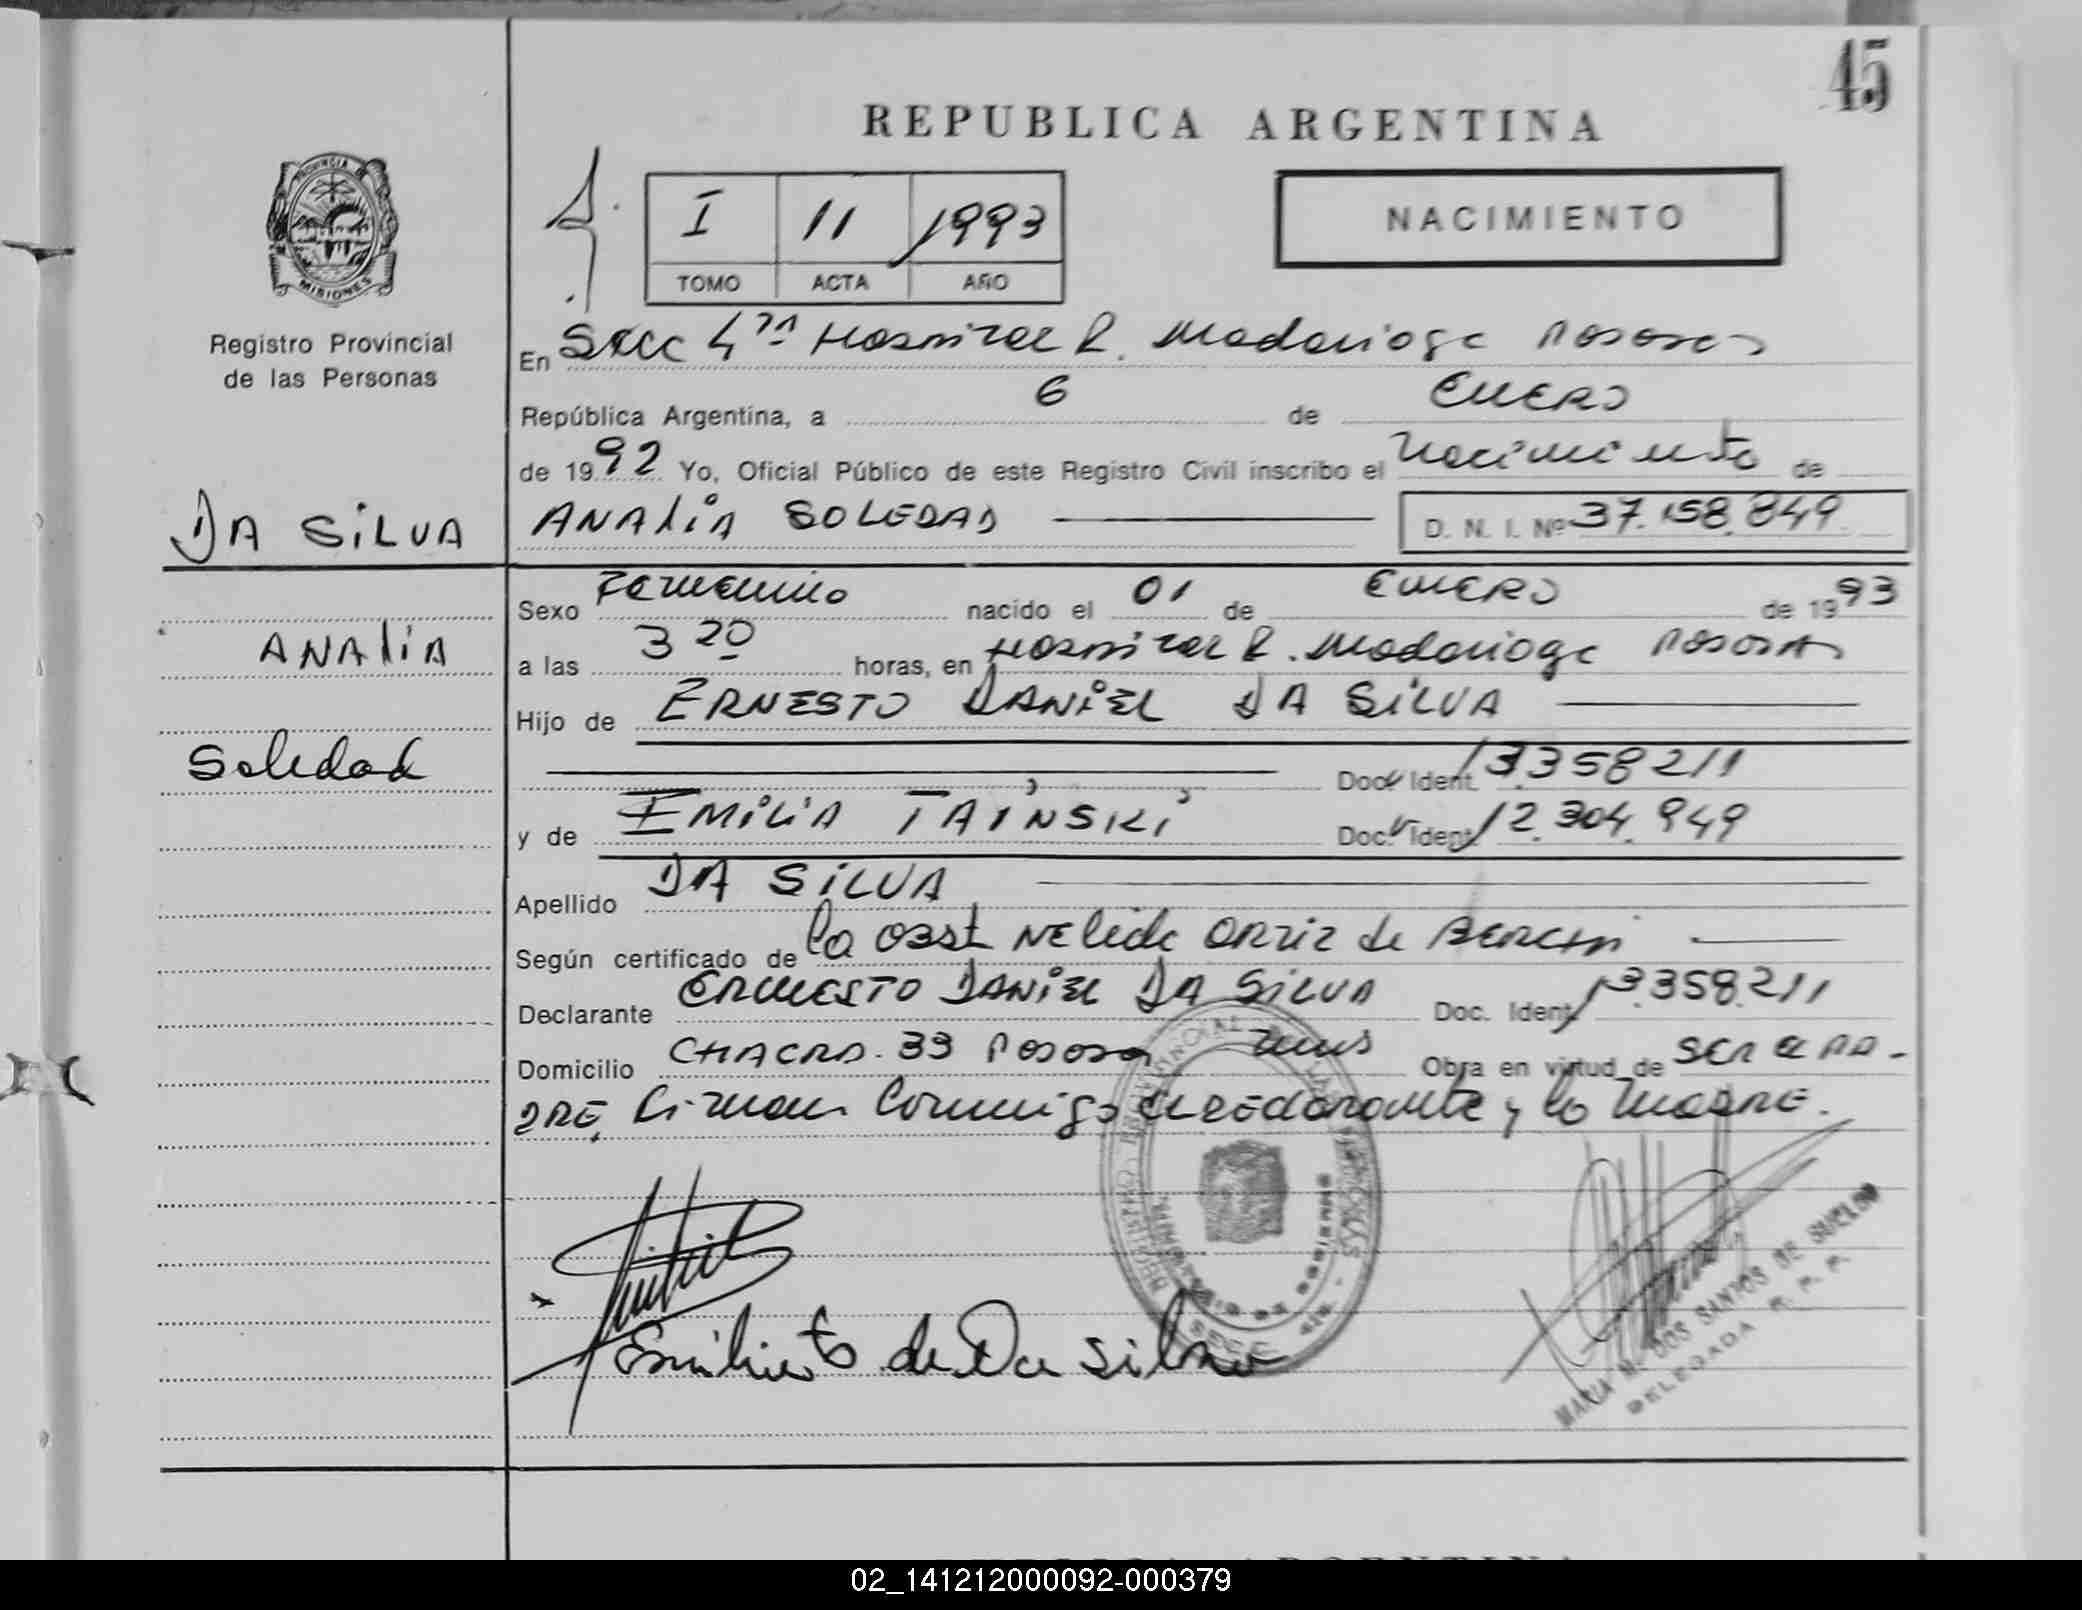 45
REPUBLICA ARGENTINA
PROVINCIA
MISIONES
Registro Provincial
de las Personas
I 11 1993
TOMO ACTA AÑO
NACIMIENTO
En Secc 4ta Hospital R. Madariaga Posadas
República Argentina, a 6 de ENERO
de 1992 Yo, Oficial Público de este Registro Civil inscribo el Nacimiento de
DA SILVA
ANALIA SOLEDAD D. N. I. Nº 37.158.849
Sexo Femenino nacido el 01 de ENERO de 1993
ANALIA
a las 3 20 horas, en Hospital R. Madariaga Posadas
Hijo de ERNESTO DANIEL DA SILVA
Soledad
Doc. Ident. 13.358.211
y de EMILIA TAINSKI Doc. Ident. 12.304.949
Apellido DA SILVA
Según certificado de la Obst Nelida Ortiz de
Declarante ERNESTO DANIEL DA SILVA Doc. Ident. 13.358.211
Domicilio CHACRA. 33 Posadas Mnes Obra en virtud de SER EL PA-
DRE, Firman Conmigo el declarante y la MADRE.
REGISTRO PROVINCIAL DE LAS PERSONAS
de Da Silva
MARIA M. DOS SANTOS DE SUELDO
DELEGADA R. P. P.
02_141212000092-000379